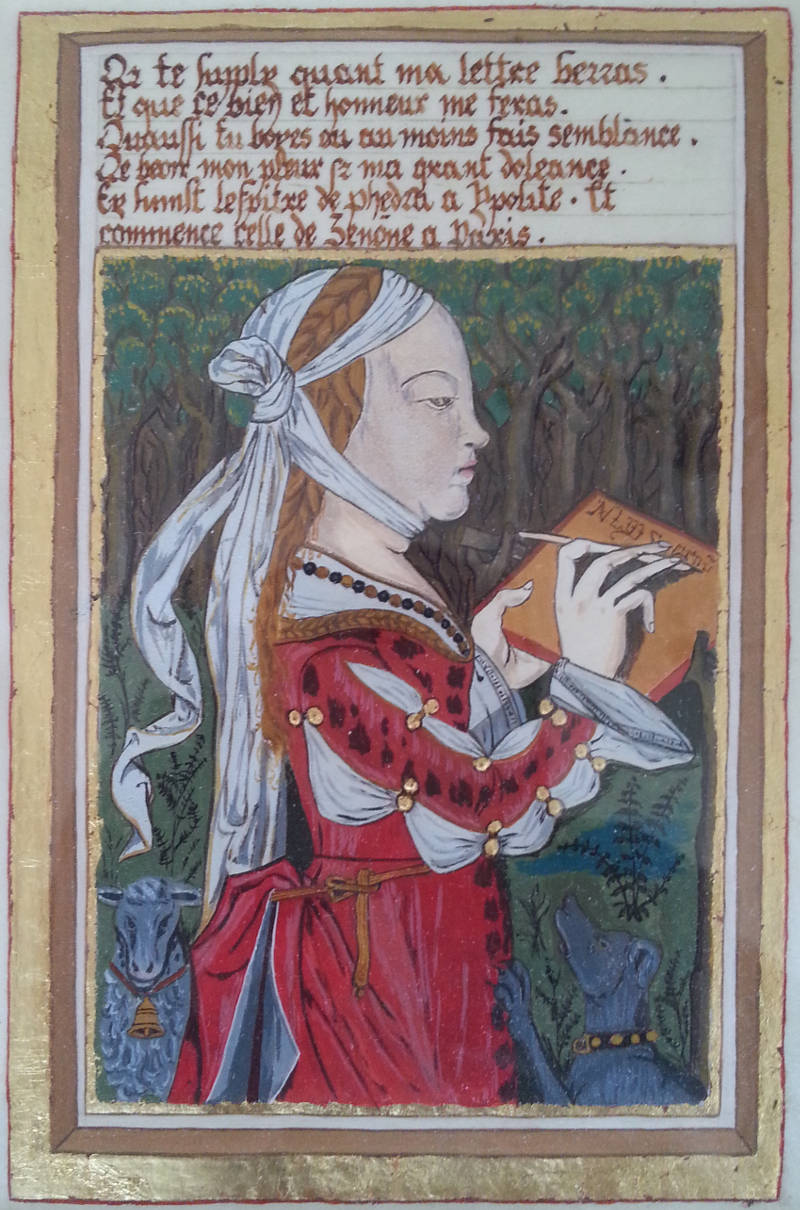 Or te supply quant ma lettre verras.
Et que ce bien et honneur me feras.
Quaussi tu voyes ou au moins fais semblance.
De veoir mon pleur et ma grant doleance.
Ey finist lespitre de phedra a Ypolite. Et
commence celle de Zenone a Paris.